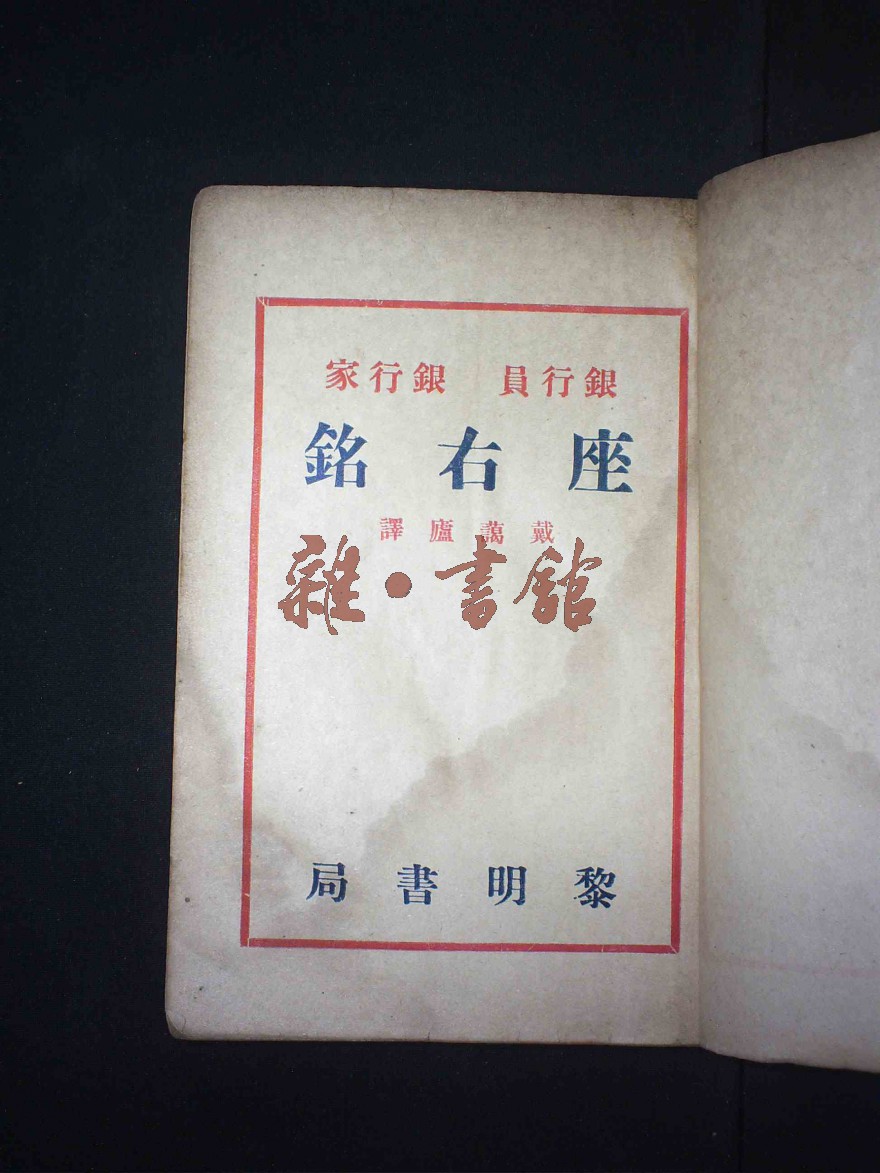 銀行員 銀行家
座右銘
戴藹廬譯
雜·書館
黎明書局